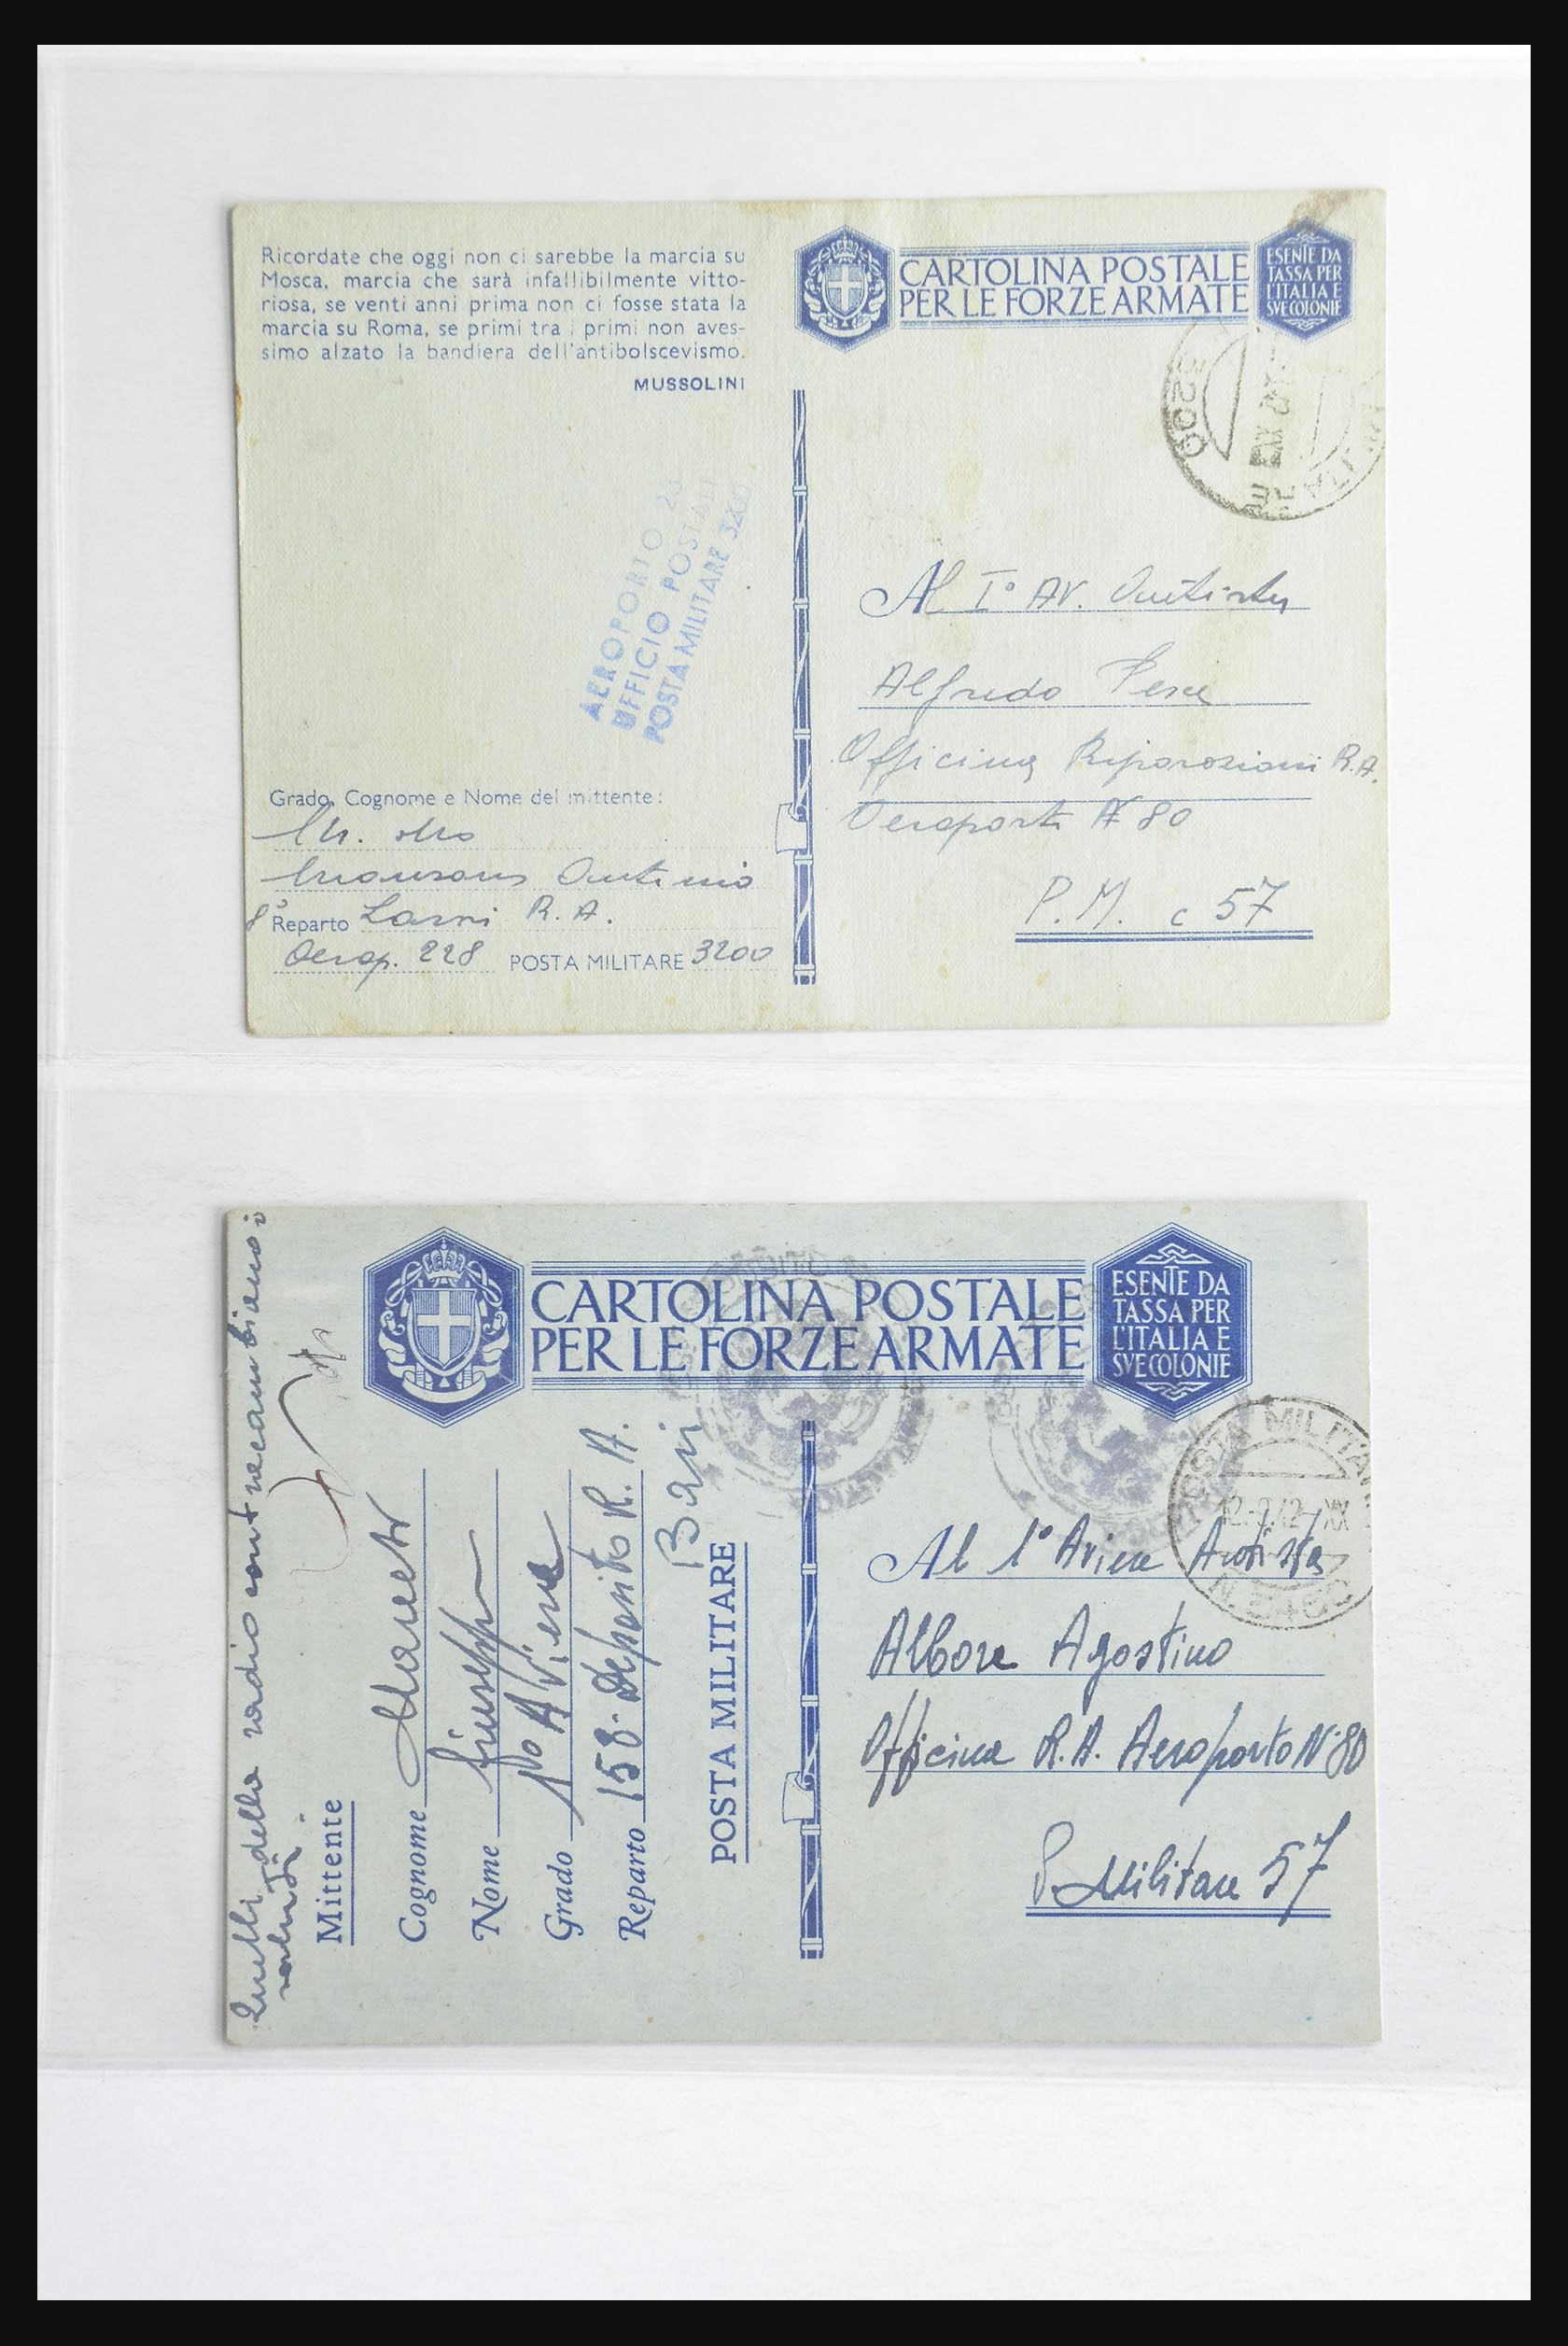 Ricordate che oggi non ci sarebbe la marcia su
Mosca, marcia che sarà infallibilmente vitto-
riosa, se venti anni prima non ci fosse stata la
marcia su Roma, se primi tra i primi non aves-
simo alzato la bandiera dell'antibolscevismo.
MUSSOLINI
CARTOLINA POSTALE
PER LE FORZE ARMATE
ESENTE DA
TASSA PER
L'ITALIA E
SVE COLONIE
3200
AEROPORTO
UFFICIO POSTALE
POSTA MILITARE 3200
Al I° AV. Autista
Alfredo Pesce
Officina Riparazioni R.A.
Aeroporto N 80
P.M. c 57
Grado, Cognome e Nome del mittente:
8° Reparto R. A.
Aerop. 228 POSTA MILITARE 3200
CARTOLINA POSTALE
PER LE FORZE ARMATE
ESENTE DA
TASSA PER
L'ITALIA E
SVE COLONIE
POSTA MILITARE
N. 3450
Quelli della radio contraccambiano i
saluti.
Mittente
Cognome
Nome Giuseppe
Grado 1° Aviere
Reparto 158 Deposito R. A.
Bari
POSTA MILITARE
Al 1° Aviere Autista
Albore Agostino
Officina R.A. Aeroporto N° 80
P. Militare 57